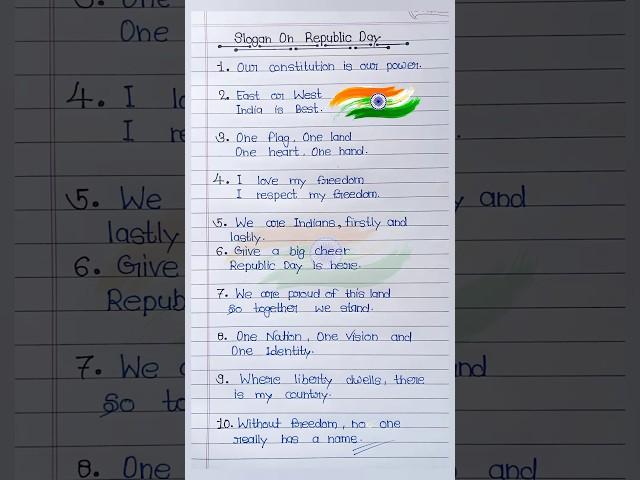 Slogan On Republic Day
1. Our constitution is our power.
2. East or West
India is Best.
3. One flag, One land
One heart, One hand.
4. I love my freedom
I respect my freedom.
5. We are Indians, firstly and
lastly.
6. Give a big cheer
Republic Day is here.
7. We are proud of this land
So together we stand.
8. One Nation, One Vision and
One Identity.
9. Where liberty dwells, there
is my country.
10. Without freedom, no one
really has a name.